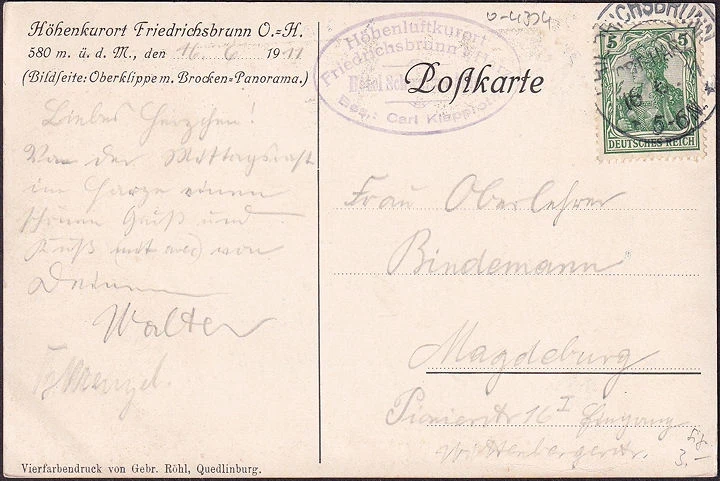 Höhenkurort Friedrichsbrunn O.=H.
580 m. ü. d. M., den 16. 6. 1911
(Bildseite: Oberklippe m. Brocken=Panorama.)
Liebes Herzchen!
Von der Mittagsrast
im Harze einen
schönen Gruß und
Kuß mit von
Deinem
Walter
Vierfarbendruck von Gebr. Röhl, Quedlinburg.
Höhenluftkurort
Friedrichsbrunn
Hotel
Bes.: Carl
Postkarte
5 5
DEUTSCHES REICH
16 6
5-6N.
Frau Oberlehrer
Bindemann
Magdeburg
Pionierstr 16 I Eingang
Wittenbergerstr.